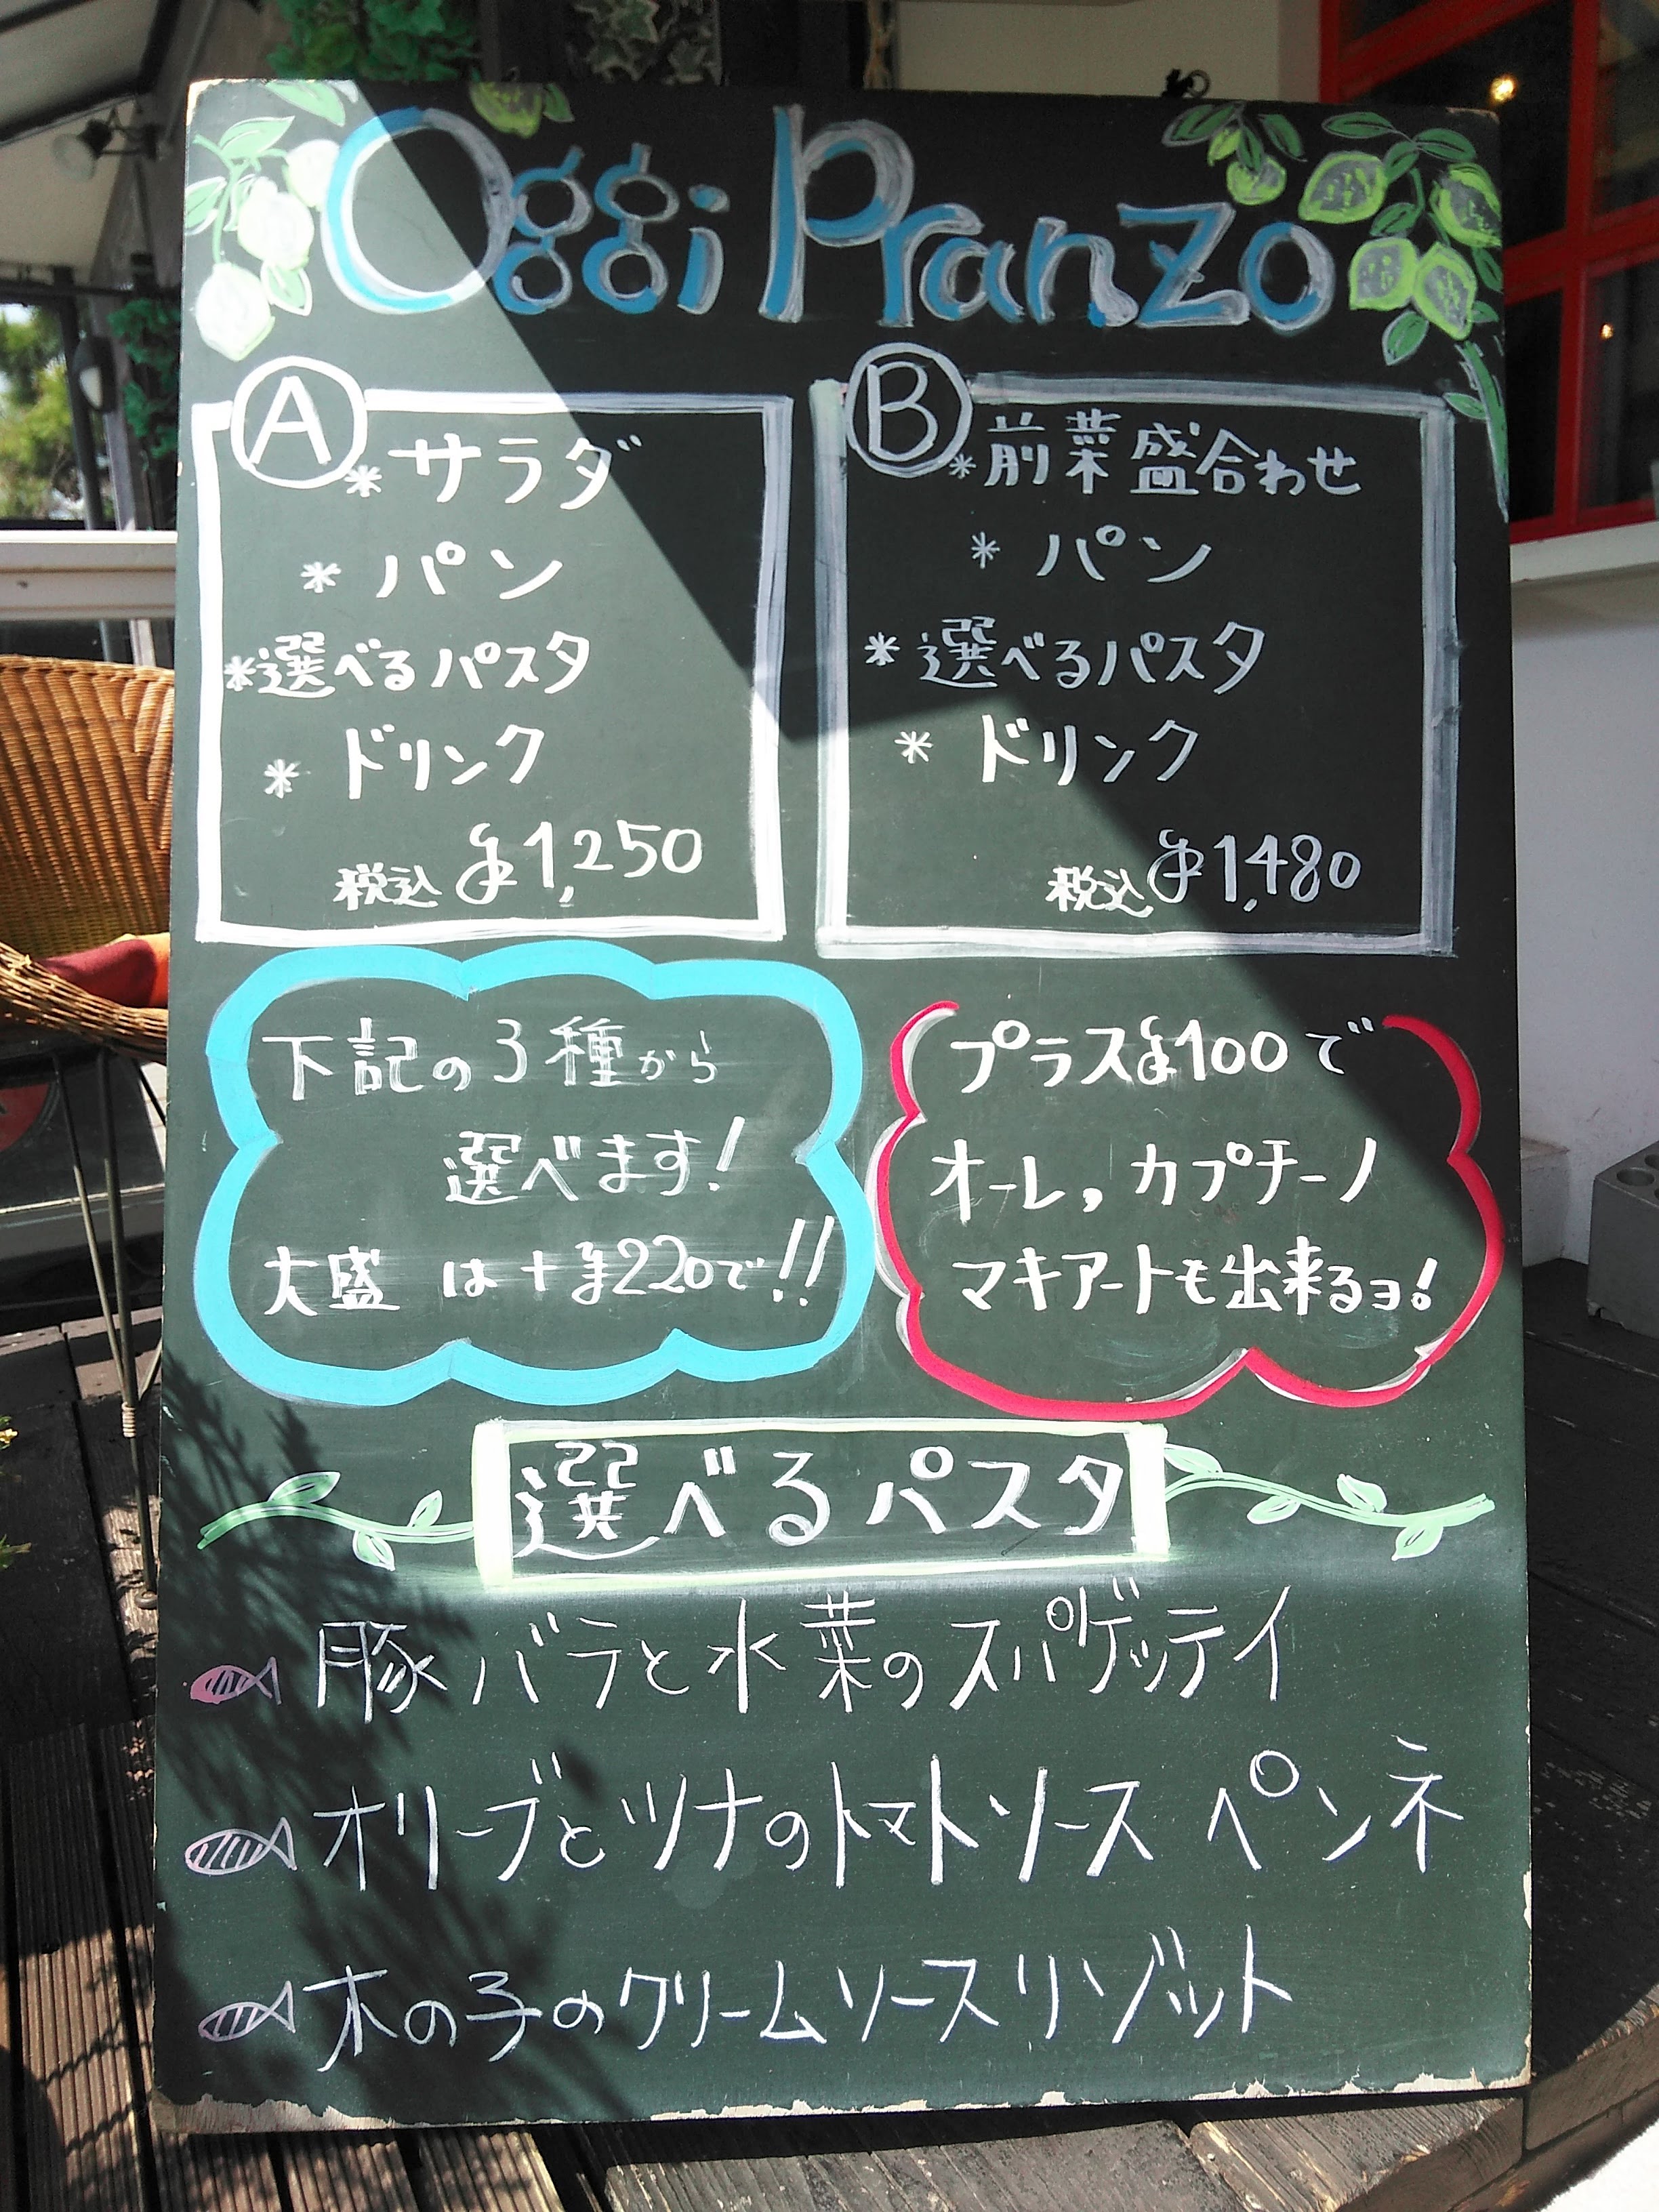 Oggi Pranzo
A
*サラダ
*パン
*選べるパスタ
*ドリンク
税込¥1,250
B
*前菜盛合わせ
*パン
*選べるパスタ
*ドリンク
税込¥1,480
下記の3種から
選べます!
大盛は+¥220で!!
プラス¥100で
オーレ,カプチーノ
マキアートも出来るヨ!
選べるパスタ
豚バラと水菜のスパゲッティ
オリーブとツナのトマトソース ペンネ
木の子のクリームソースリゾット